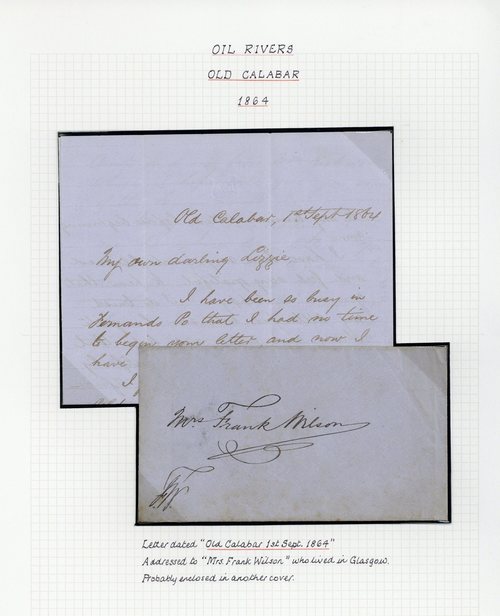 OIL RIVERS
OLD CALABAR
1864
Old Calabar, 1st Sept 1864
My own darling Lizzie
I have been so busy in
Fernando Po that I had no time
to begin your letter and now I
have
I
Mrs Frank Wilson
FW
Letter dated "Old Calabar 1st Sept. 1864"
Addressed to "Mrs. Frank Wilson" who lived in Glasgow.
Probably enclosed in another cover.